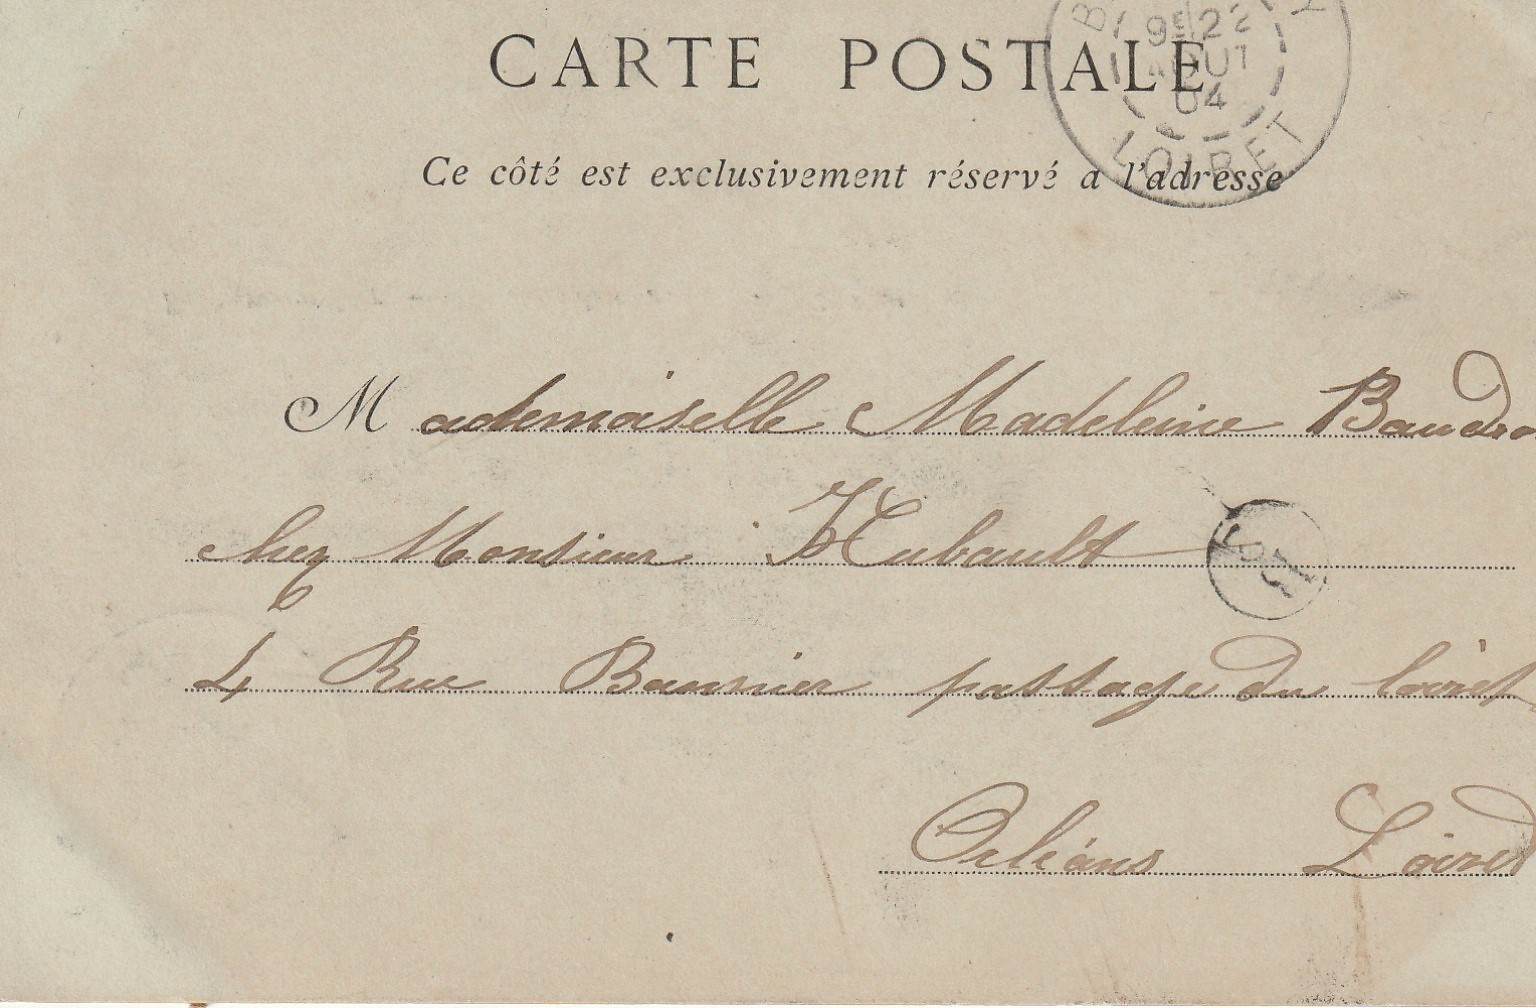 CARTE POSTALE
22
AOUT
04
LOIRET
Ce côté est exclusivement réservé à l'adresse
Mademoiselle Madeleine
chez Monsieur Hubault
4 Rue Bannier passage du loiret
Orléans Loiret